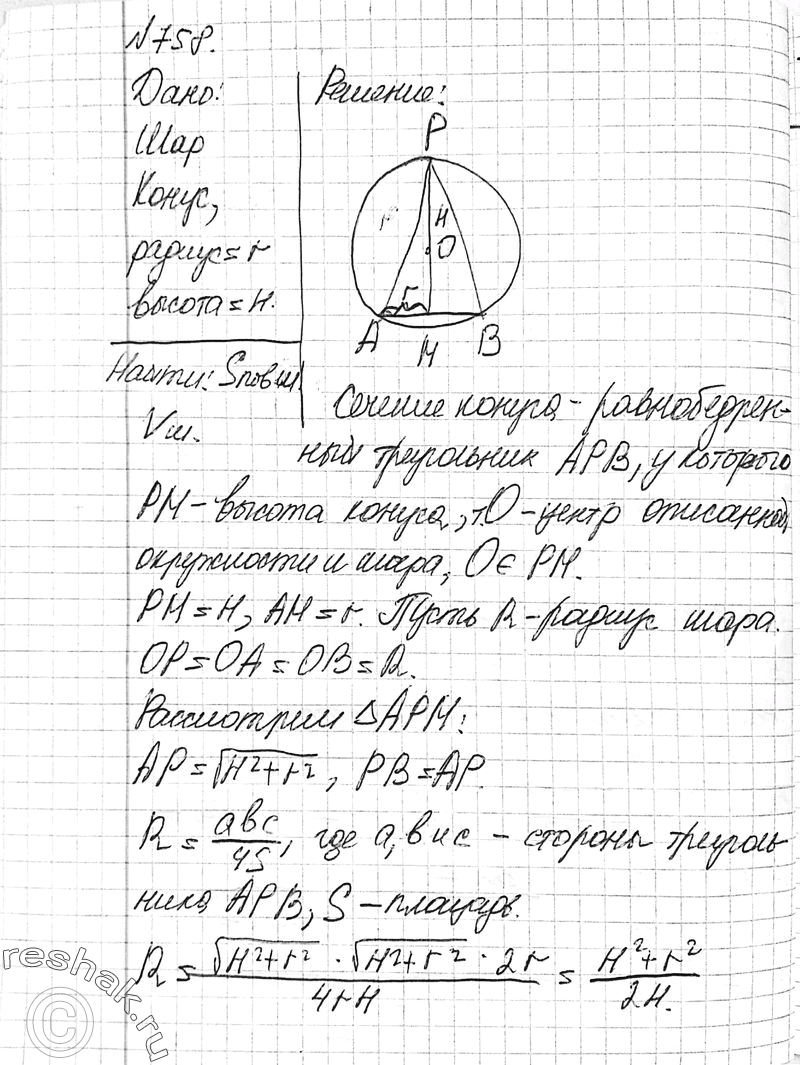 N758.
Дано:
Шар
Конус,
радиус = r
высота = H.
Найти: Sпов.ш.
Vш.
Решение:
P
H
O
r
A
M
B
Сечение конуса – равнобедрен-
ный треугольник APB, у которого
PM – высота конуса, т.О – центр описанной
окружности и шара, O ∈ PM.
PM = H, AM = r. Пусть R – радиус шара.
OP = OA = OB = R.
Рассмотрим △APM:
AP = √(H²+r²), PB = AP.
R = abc/4S, где a, b и c – стороны треуголь-
ника APB, S – площадь.
R = (√(H²+r²) · √(H²+r²) · 2r)/(4rH) = (H²+r²)/(2H).
reshak.ru
©